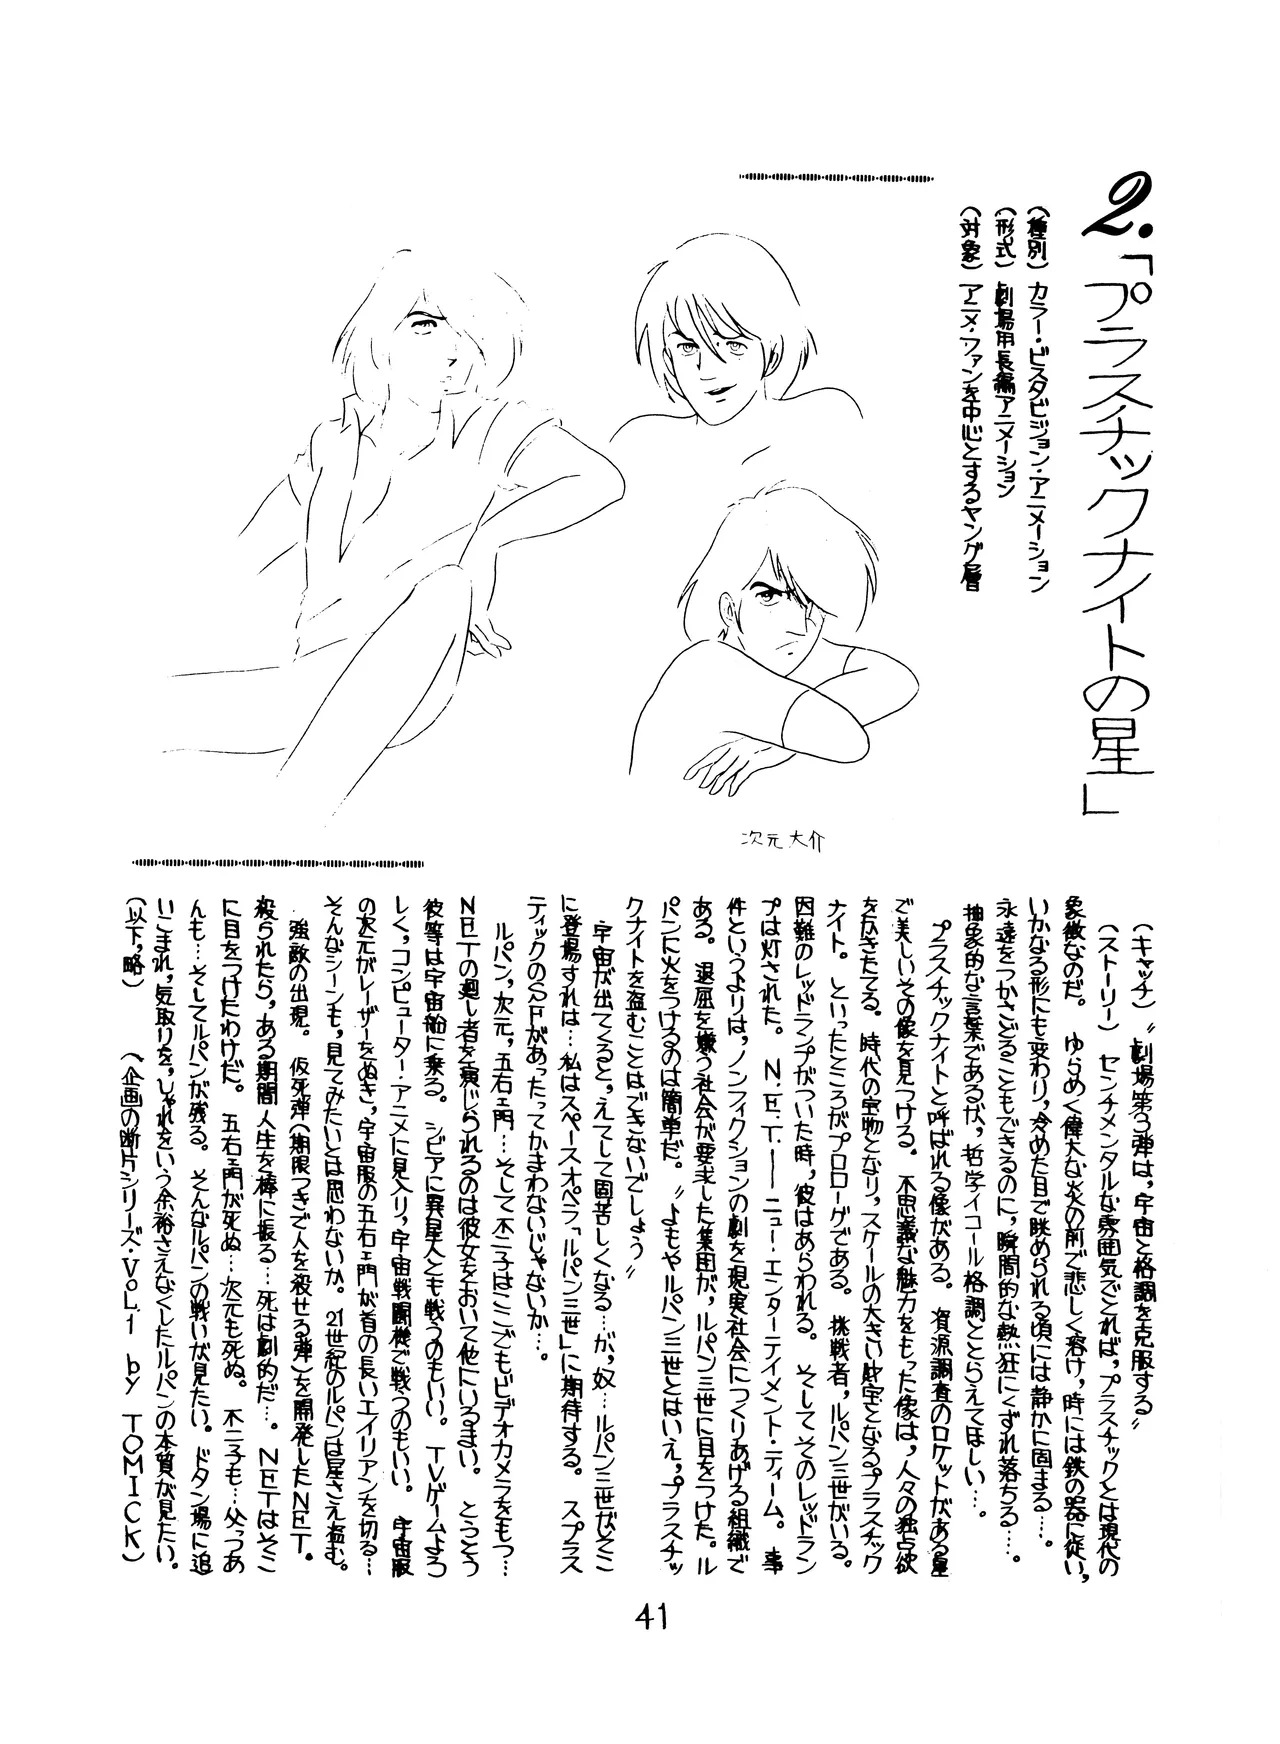 2.「プラスチックナイトの星」
(種別) カラー・ビスタビジョン・アニメーション
(形式) 劇場用長編アニメーション
(対象) アニメ・ファンを中心とするヤング層
次元大介
(キャッチ)〝劇場第3弾は,宇宙と格調を克服する〟
(ストーリー) センチメンタルな雰囲気でとれば,プラスチックとは現代の
象徴なのだ。 ゆらめく偉大な火の前で悲しく溶け,時には鉄の器に従い,
いかなる形にも変わり,冷めた目で眺められる頃には静かに固まる…。
永遠をつかさどることもできるのに,瞬間的な熱狂にくずれ落ちる…。
抽象的な言葉であるが,哲学イコール格調ととらえてほしい…。
プラスチックナイトと呼ばれる像がある。 資源調査のロケットがある星
で美しいその像を見つける。 不思議な魅力をもった像は,人々の独占欲
をかきたてる。 時代の宝物となり,スケールの大きい財宝となるプラスチック
ナイト。 といったところがプロローグである。 挑戦者,ルパン三世がいる。
困難のレッドランプがついた時,彼はあらわれる。 そしてそのレッドラン
プは灯された。 N.E.T.――ニュー・エンターテイメント・ティーム。 事
件というよりは,ノンフィクションの劇を現実社会につくりあげる組織で
ある。 退屈を嫌う社会が要求した集団が,ルパン三世に目をつけた。 ル
パンに火をつけるのは簡単だ。〝よもやルパン三世とはいえ,プラスチッ
クナイトを盗むことはできないでしょう〟
宇宙が出てくると,えてして固苦しくなる…が,奴…ルパン三世がそこ
に登場すれば…私はスペースオペラ「ルパン三世」に期待する。 スプラス
ティックのSFがあったってかまわないじゃないか…。
ルパン,次元,五右ェ門…そして不二子はここでもビデオカメラをもつ…
NETの廻し者を演じられるのは彼女をおいて他にいるまい。 とうとう
彼等は宇宙船に乗る。 シビアに異星人とも戦うのもいい。 TVゲームよろ
しく,コンピューター・アニメに見入り,宇宙戦闘機で戦うのもいい。 宇宙服
の次元がレーザーをぬき,宇宙服の五右ェ門が首の長いエイリアンを切る…
そんなシーンも,見てみたいとは思わないか。 21世紀のルパンは星さえ盗む。
強敵の出現。 仮死弾(期限つきで人を殺せる弾)を開発したNET。
殺られたら,ある期間人生を棒に振る…死は劇的だ…。 NETはそこ
に目をつけたわけだ。 五右ェ門が死ぬ…次元も死ぬ。 不二子も…父っつあ
んも…そしてルパンが残る。 そんなルパンの戦いが見たい。 ドタン場に追
いこまれ,気取りを,しゃれをいう余裕さえなくしたルパンの本質が見たい。
(以下,略) (企画の断片シリーズ・VOL.1 by TOMICK)
41